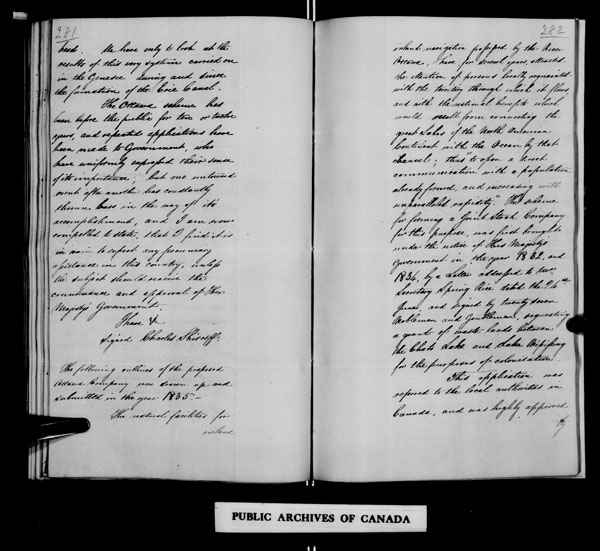 281
need. We have only to look at the
results of this very system carried on
in the Genesee during and since
the formation of the Erie Canal.
The Ottawa scheme has
been before the public for ten or twelve
years, and repeated applications have
been made to Government, who
have uniformly expressed their sense
of its importance; but one untoward
event after another has constantly
thrown bars in the way of its
accomplishment, and I am now
compelled to state, that I find it is
in vain to expect any pecuniary
assistance in this country, unless
the subject should receive the
countenance and approval of Her
Majesty's Government.
I have &
Signed Charles Shirreff.
The following outlines of the proposed
Ottawa Company was drawn up and
submitted in the year 1835.–
The natural facilities for
inland
282
inland navigation possessed by the River
Ottawa, have for several years, attracted
the attention of persons locally acquainted
with the territory through which it flows,
and with the national benefits which
would result from connecting the
great Lakes of the North American
Continent with the Ocean by that
channel; thus to open a direct
communication with a population
already formed, and increasing with
unparalleled rapidity." The scheme
for forming a Joint Stock Company
for this purpose, was first brought
under the notice of His Majesty's
Government in the year 1832, and
1834, by a Letter addressed to Mr.
Secretary Spring Rice dated the 26th
June, and signed by twenty seven
Noblemen and Gentlemen, requesting
a grant of waste lands between
the Chats Lake and Lake Nipissing
for the purposes of colonisation.
This application was
referred to the local authorities in
Canada, and was highly approved
by
PUBLIC ARCHIVES OF CANADA